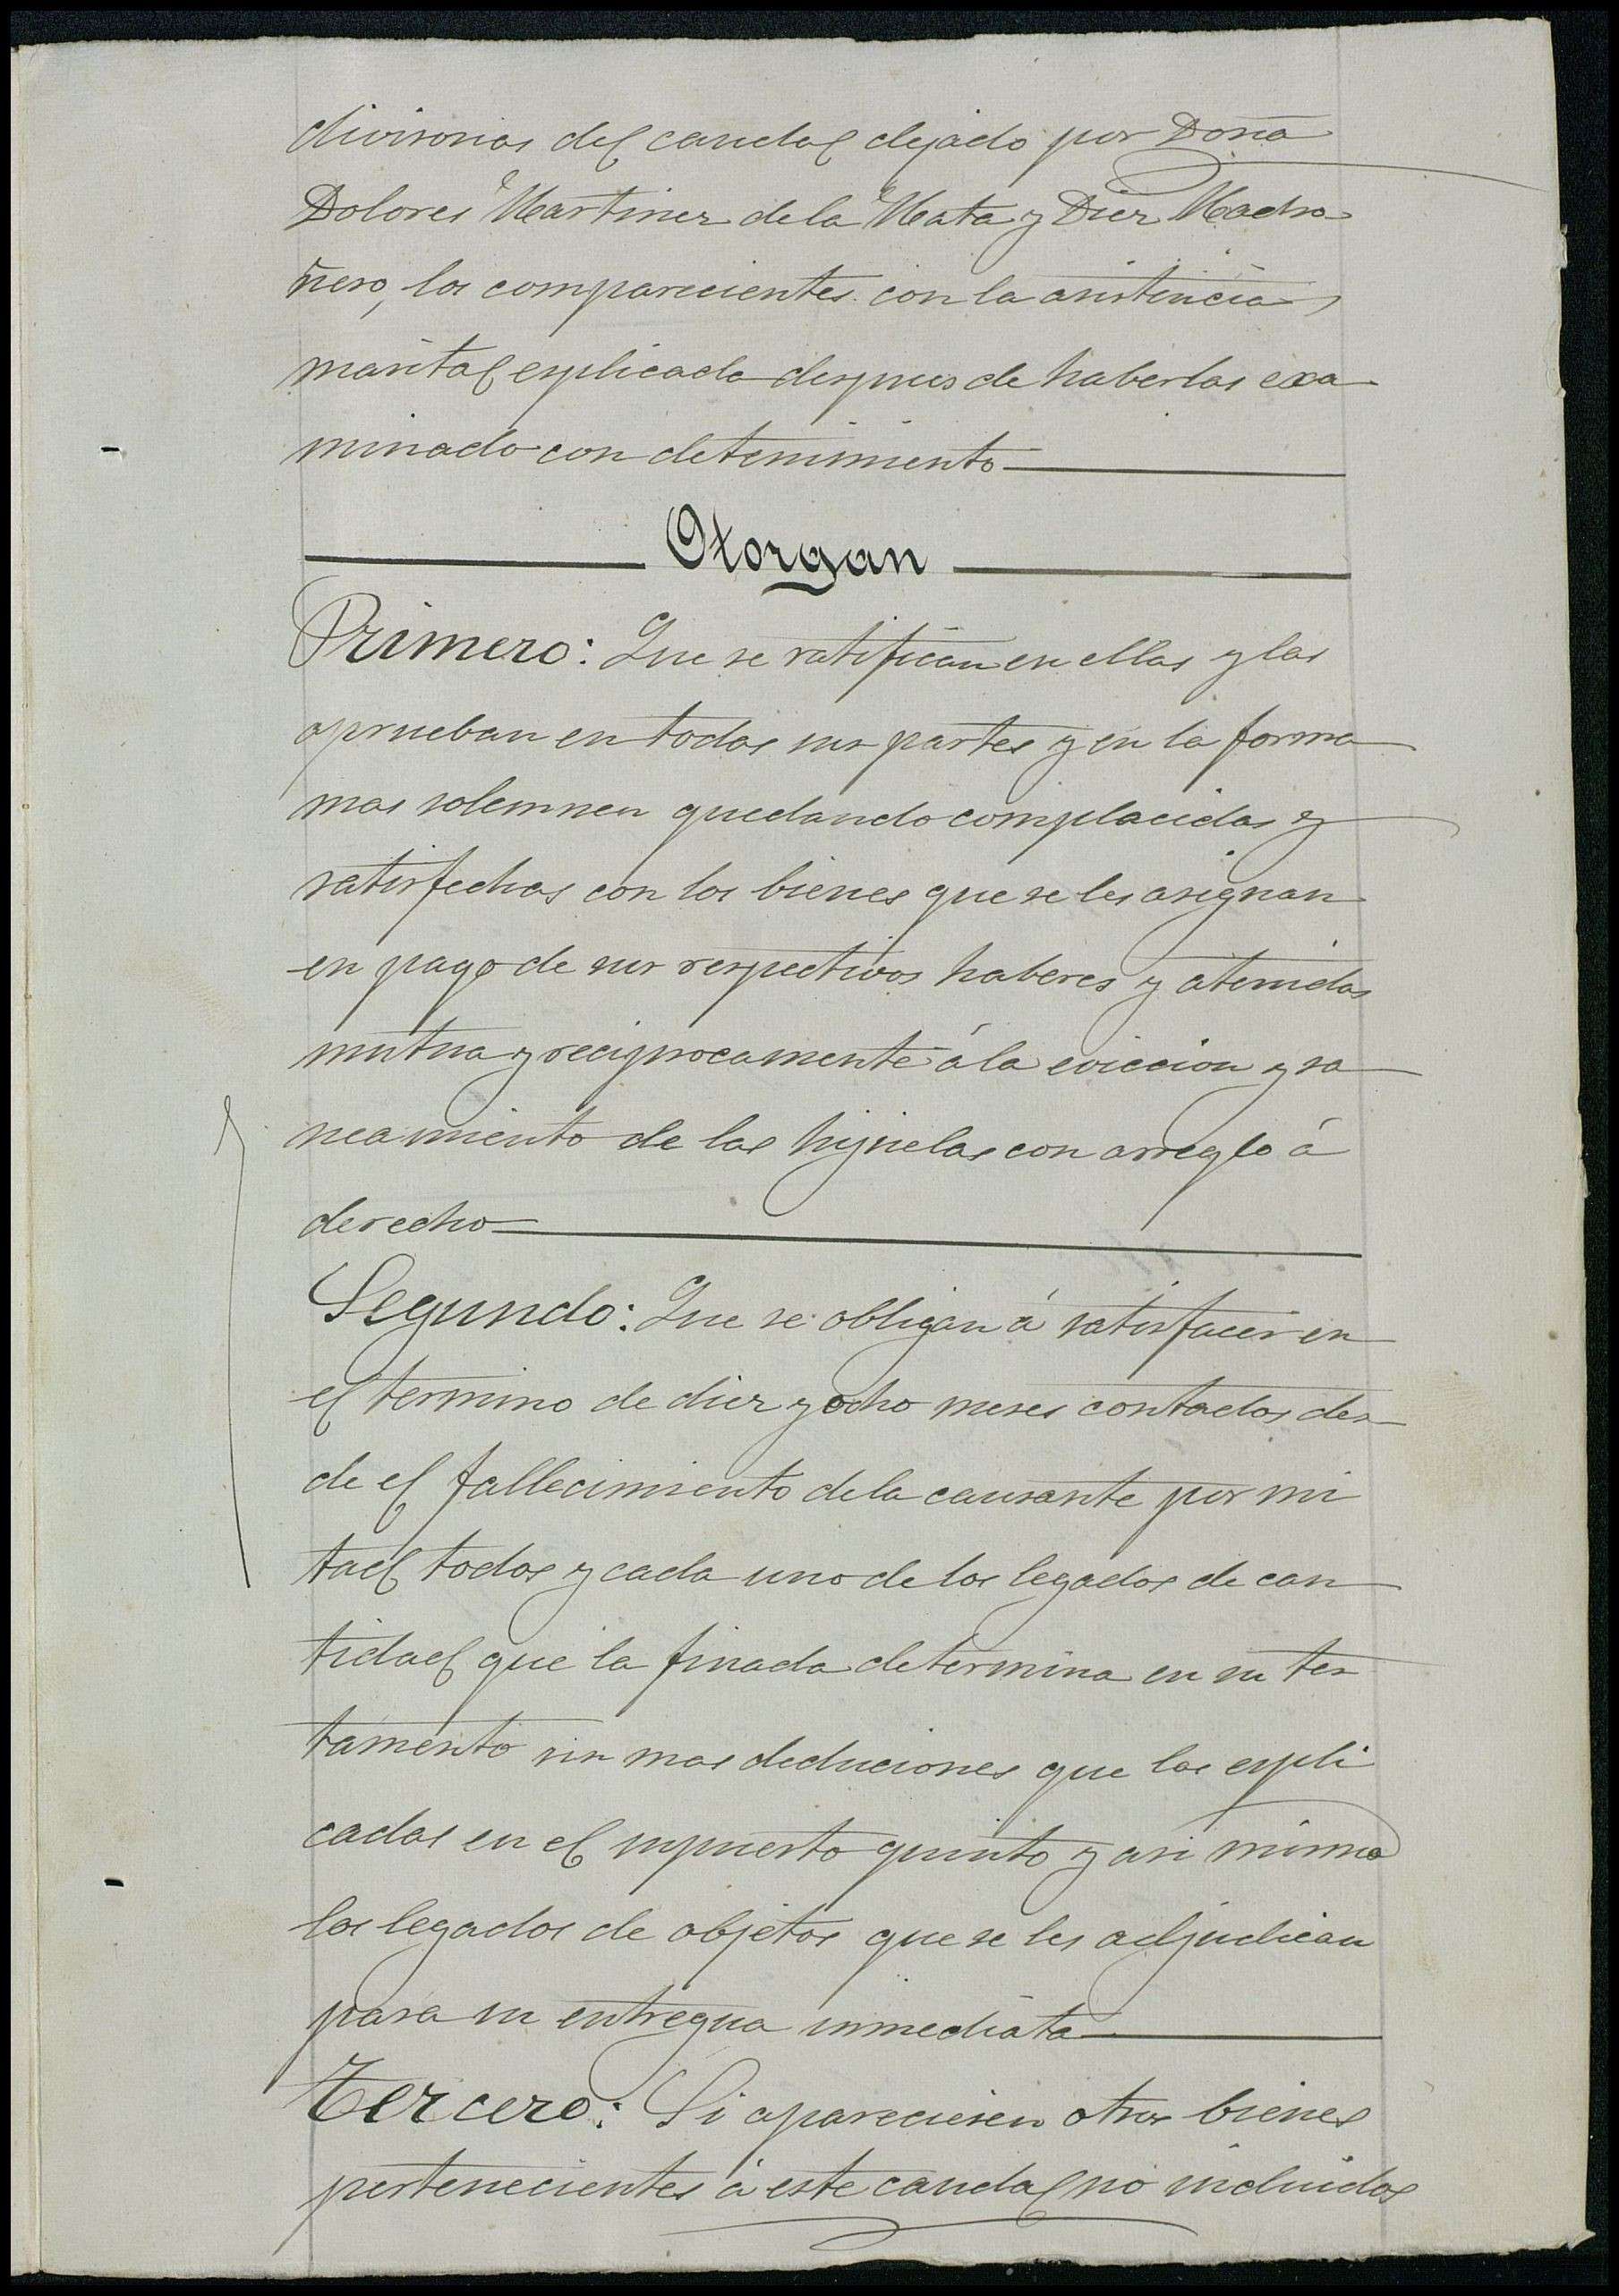 divisorias del caudal dejado por Doña
Dolores Martinez de la Mata y Diez Madro
ñero, los comparecientes con la asistencia
marital esplicada despues de haberlas exa
minado con detenimiento
Otorgan
Primero: Que se ratifican en ellas y las
aprueban en todas sus partes y en la forma
mas solemnen quedando complacidas y
satisfechas con los bienes que se les asignan
en pago de sus respectivos haberes y atenidas
mutua y reciprocamente á la eviccion y sa
neamiento de las hijuelas con arreglo á
derecho
Segundo: Que se obligan á satisfacer en
el termino de diez y ocho meses contados des
de el fallecimiento de la causante por mi
tad todos y cada uno de los legados de can
tidad que la finada determina en su tes
tamento sin mas deduciones que las espli
cadas en el supuesto quinto y asi mismo
los legados de objetos que se les adjudican
para su entregua inmediata
Tercero: Si apareciesen otros bienes
pertenecientes á este caudal no incluidos